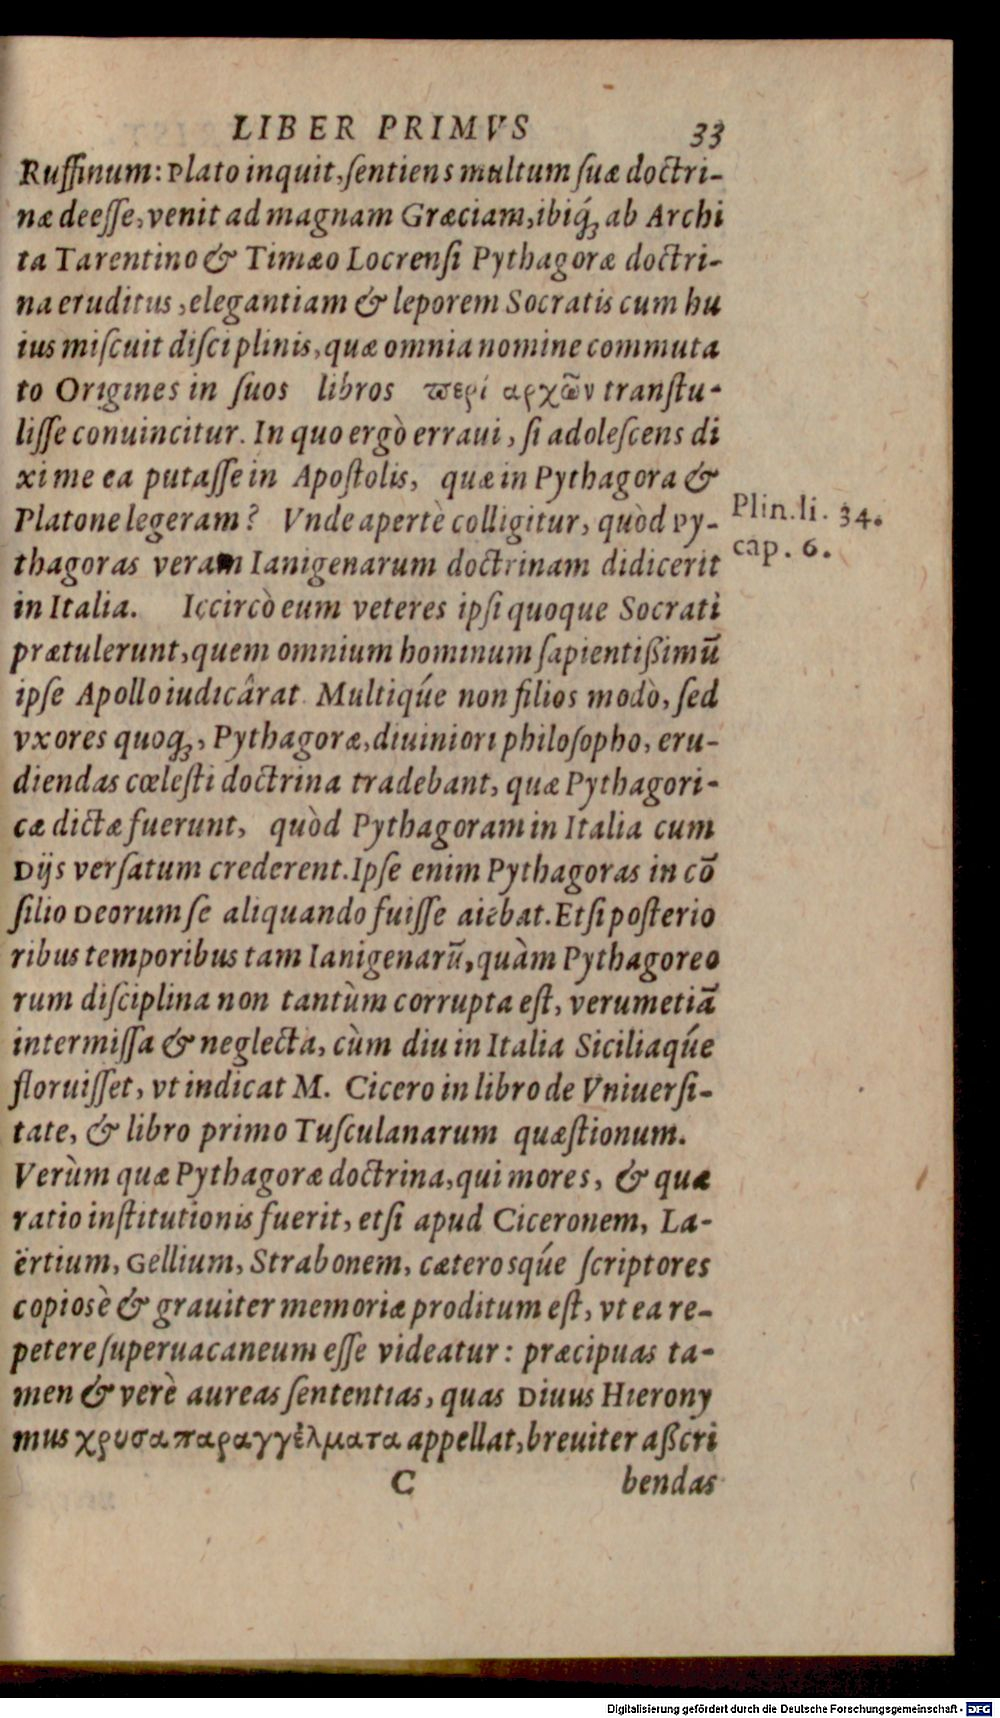 LIBER PRIMVS 33
Ruſſinum: Plato inquit, ſentiens multum ſuæ doctri-
næ deeſſe, venit ad magnam Græciam, ibiq́ꝫ ab Archi
ta Tarentino & Timæo Locrenſi Pythagoræ doctri-
na eruditus, elegantiam & leporem Socratis cum hu
ius miſcuit diſciplinis, quæ omnia nomine commuta
to Origines in ſuos libros περί αρχῶν tranſtu-
liſſe conuincitur. In quo ergò erraui, ſi adoleſcens di
xi me ea putaſſe in Apoſtolis, quæ in Pythagora &
Platone legeram? Vnde apertè colligitur, quòd Py-
Plin.li. 34.
thagoras veram Ianigenarum doctrinam didicerit
cap. 6.
in Italia. Iccircò eum veteres ipſi quoque Socrati
prætulerunt, quem omnium hominum ſapientiſsimū
ipſe Apollo iudicârat. Multiqúe non filios modò, ſed
vxores quoqꝫ, Pythagoræ, diuiniori philoſopho, eru-
diendas cœleſti doctrina tradebant, quæ Pythagori-
cæ dictæ fuerunt, quòd Pythagoram in Italia cum
Dijs verſatum crederent. Ipſe enim Pythagoras in cō
ſilio Deorum ſe aliquando fuiſſe aiebat. Etſi poſterio
ribus temporibus tam Ianigenarū, quàm Pythagoreo
rum diſciplina non tantùm corrupta eſt, verumetiā
intermiſſa & neglecta, cùm diu in Italia Siciliaqúe
floruiſſet, vt indicat M. Cicero in libro de Vniuerſi-
tate, & libro primo Tuſculanarum quæſtionum.
Verùm quæ Pythagoræ doctrina, qui mores, & quæ
ratio inſtitutionis fuerit, etſi apud Ciceronem, La-
ërtium, Gellium, Strabonem, cæterosqúe ſcriptores
copiosè & grauiter memoriæ proditum eſt, vt ea re-
petere ſuperuacaneum eſſe videatur: præcipuas ta-
men & verè aureas ſententias, quas Diuus Hierony
mus χρυσα παραγγέλματα appellat, breuiter aſscri
C bendas
Digitalisierung gefördert durch die Deutsche Forschungsgemeinschaft - DFG